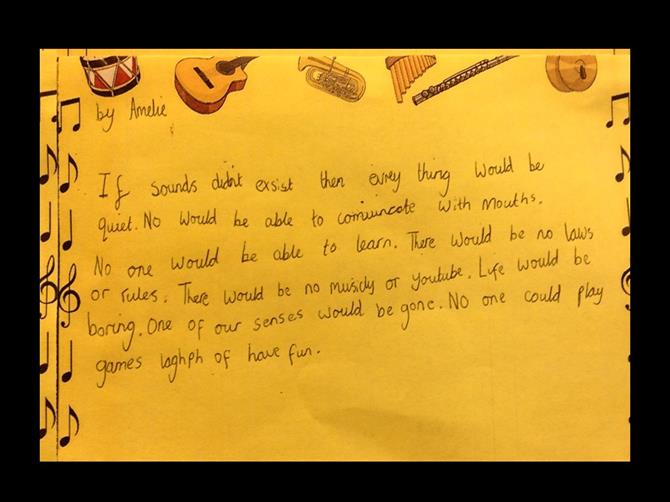 by Amelie
If sounds didn't exsist then evrey thing would be
quiet. No would be able to comiuncate with mouths.
No one would be able to learn. There would be no laws
or rules. There would be no musicly or youtube. Life would be
boring. One of our senses would be gone. NO one could play
games laghph of have fun.